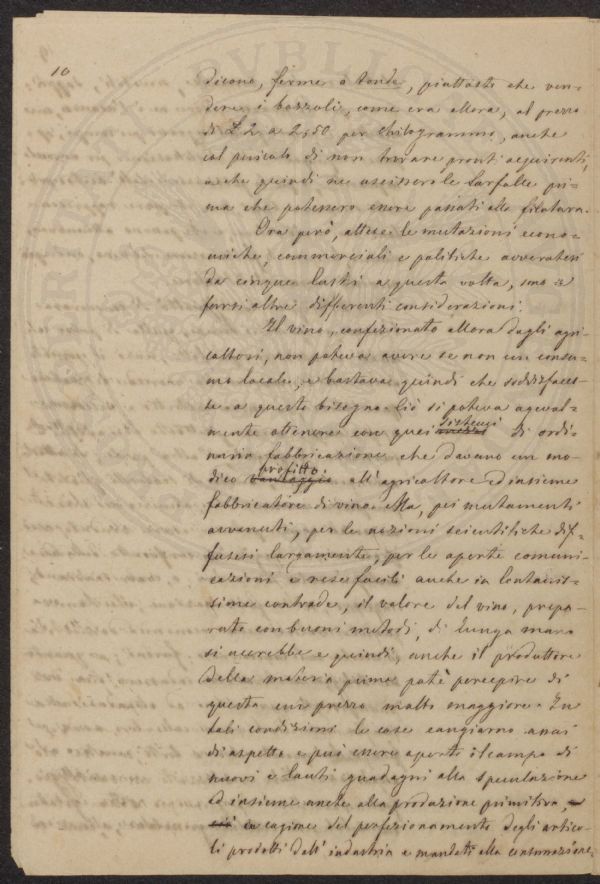 10
dicono, ferme o tonde, piuttosto che ven=
dere i bozzoli, come era allora, al prezzo
di £ 2 a 2,50 per chilogrammo, anche
col pericolo di non trovare pronti acquirenti,
e che quindi ne uscissero le farfalle pri=
ma che potessero essere passati alla filatura.
Ora però, attese le mutazioni econo=
miche, commerciali e politiche avveratesi
da cinque lustri a questa volta, sono a
farsi altre differenti considerazioni.
Il vino, confezionato allora dagli agri=
coltori, non poteva avere se non un consu=
mo locale, e bastava quindi che soddisfaces=
se a questo bisogno. Ciò si poteva agevol=
mente ottenere con quei sistemi di ordi=
naria fabbricazione che davano un mo=
dico vantaggio profitto all'agricoltore ed insieme
fabbricatore di vino. Ma, pei mutamenti
avvenuti, per le nozioni scientifiche dif=
fusesi largamente, per le aperte comuni=
cazioni e rese facili anche in lontanis=
sime contrade, il valore del vino, prepa=
rato con buoni metodi, di lunga mano
si accrebbe e quindi, anche il produttore
della materia prima potè percepire di
questa un prezzo molto maggiore. In
tali condizioni le cose cangiarno assai
di aspetto e può essere aperto il campo di
nuovi e lauti guadagni alla speculazione
ed insieme anche alla produzione primitiva,
ciò in cagione del perfezionamento degli artico=
li prodotti dell'industria e mandati alla consumazione.